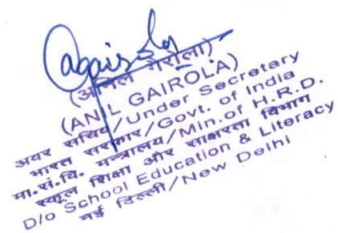 (अनिल गैरोला)
(ANIL GAIROLA)
अवर सचिव/Under Secretary
भारत सरकार/Govt. of India
मा.सं.वि. मन्त्रालय/Min. of H.R.D.
स्कूल शिक्षा और साक्षरता विभाग
D/o School Education & Literacy
नई दिल्ली/New Delhi